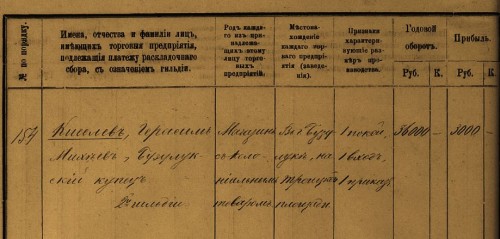 № по порядку.
Имена, отчества и фамилии лицъ,
имѣющихъ торговыя предпріятія,
подлежащія платежу раскладочнаго
сбора, съ означеніемъ гильдіи.
Родъ каждаго
изъ принадлежащихъ
этому лицу торговыхъ
предпріятій.
Мѣстонахожденіе
каждаго торговаго
предпріятія
(заведенія).
Признаки
характеризующіе
размѣръ производства.
Годовой
оборотъ.
Руб. К.
Прибыль.
Руб. К.
154
Киселевъ, Герасимъ
Михѣевъ, Бузулукскій
купецъ
2й гильдіи
Магазинъ
съ колоніальнымъ
товаромъ
Въ г. Бузулукѣ,
на Троицкой
площади
1 покой,
1 входъ
1 приказ
36000 —
3000 —